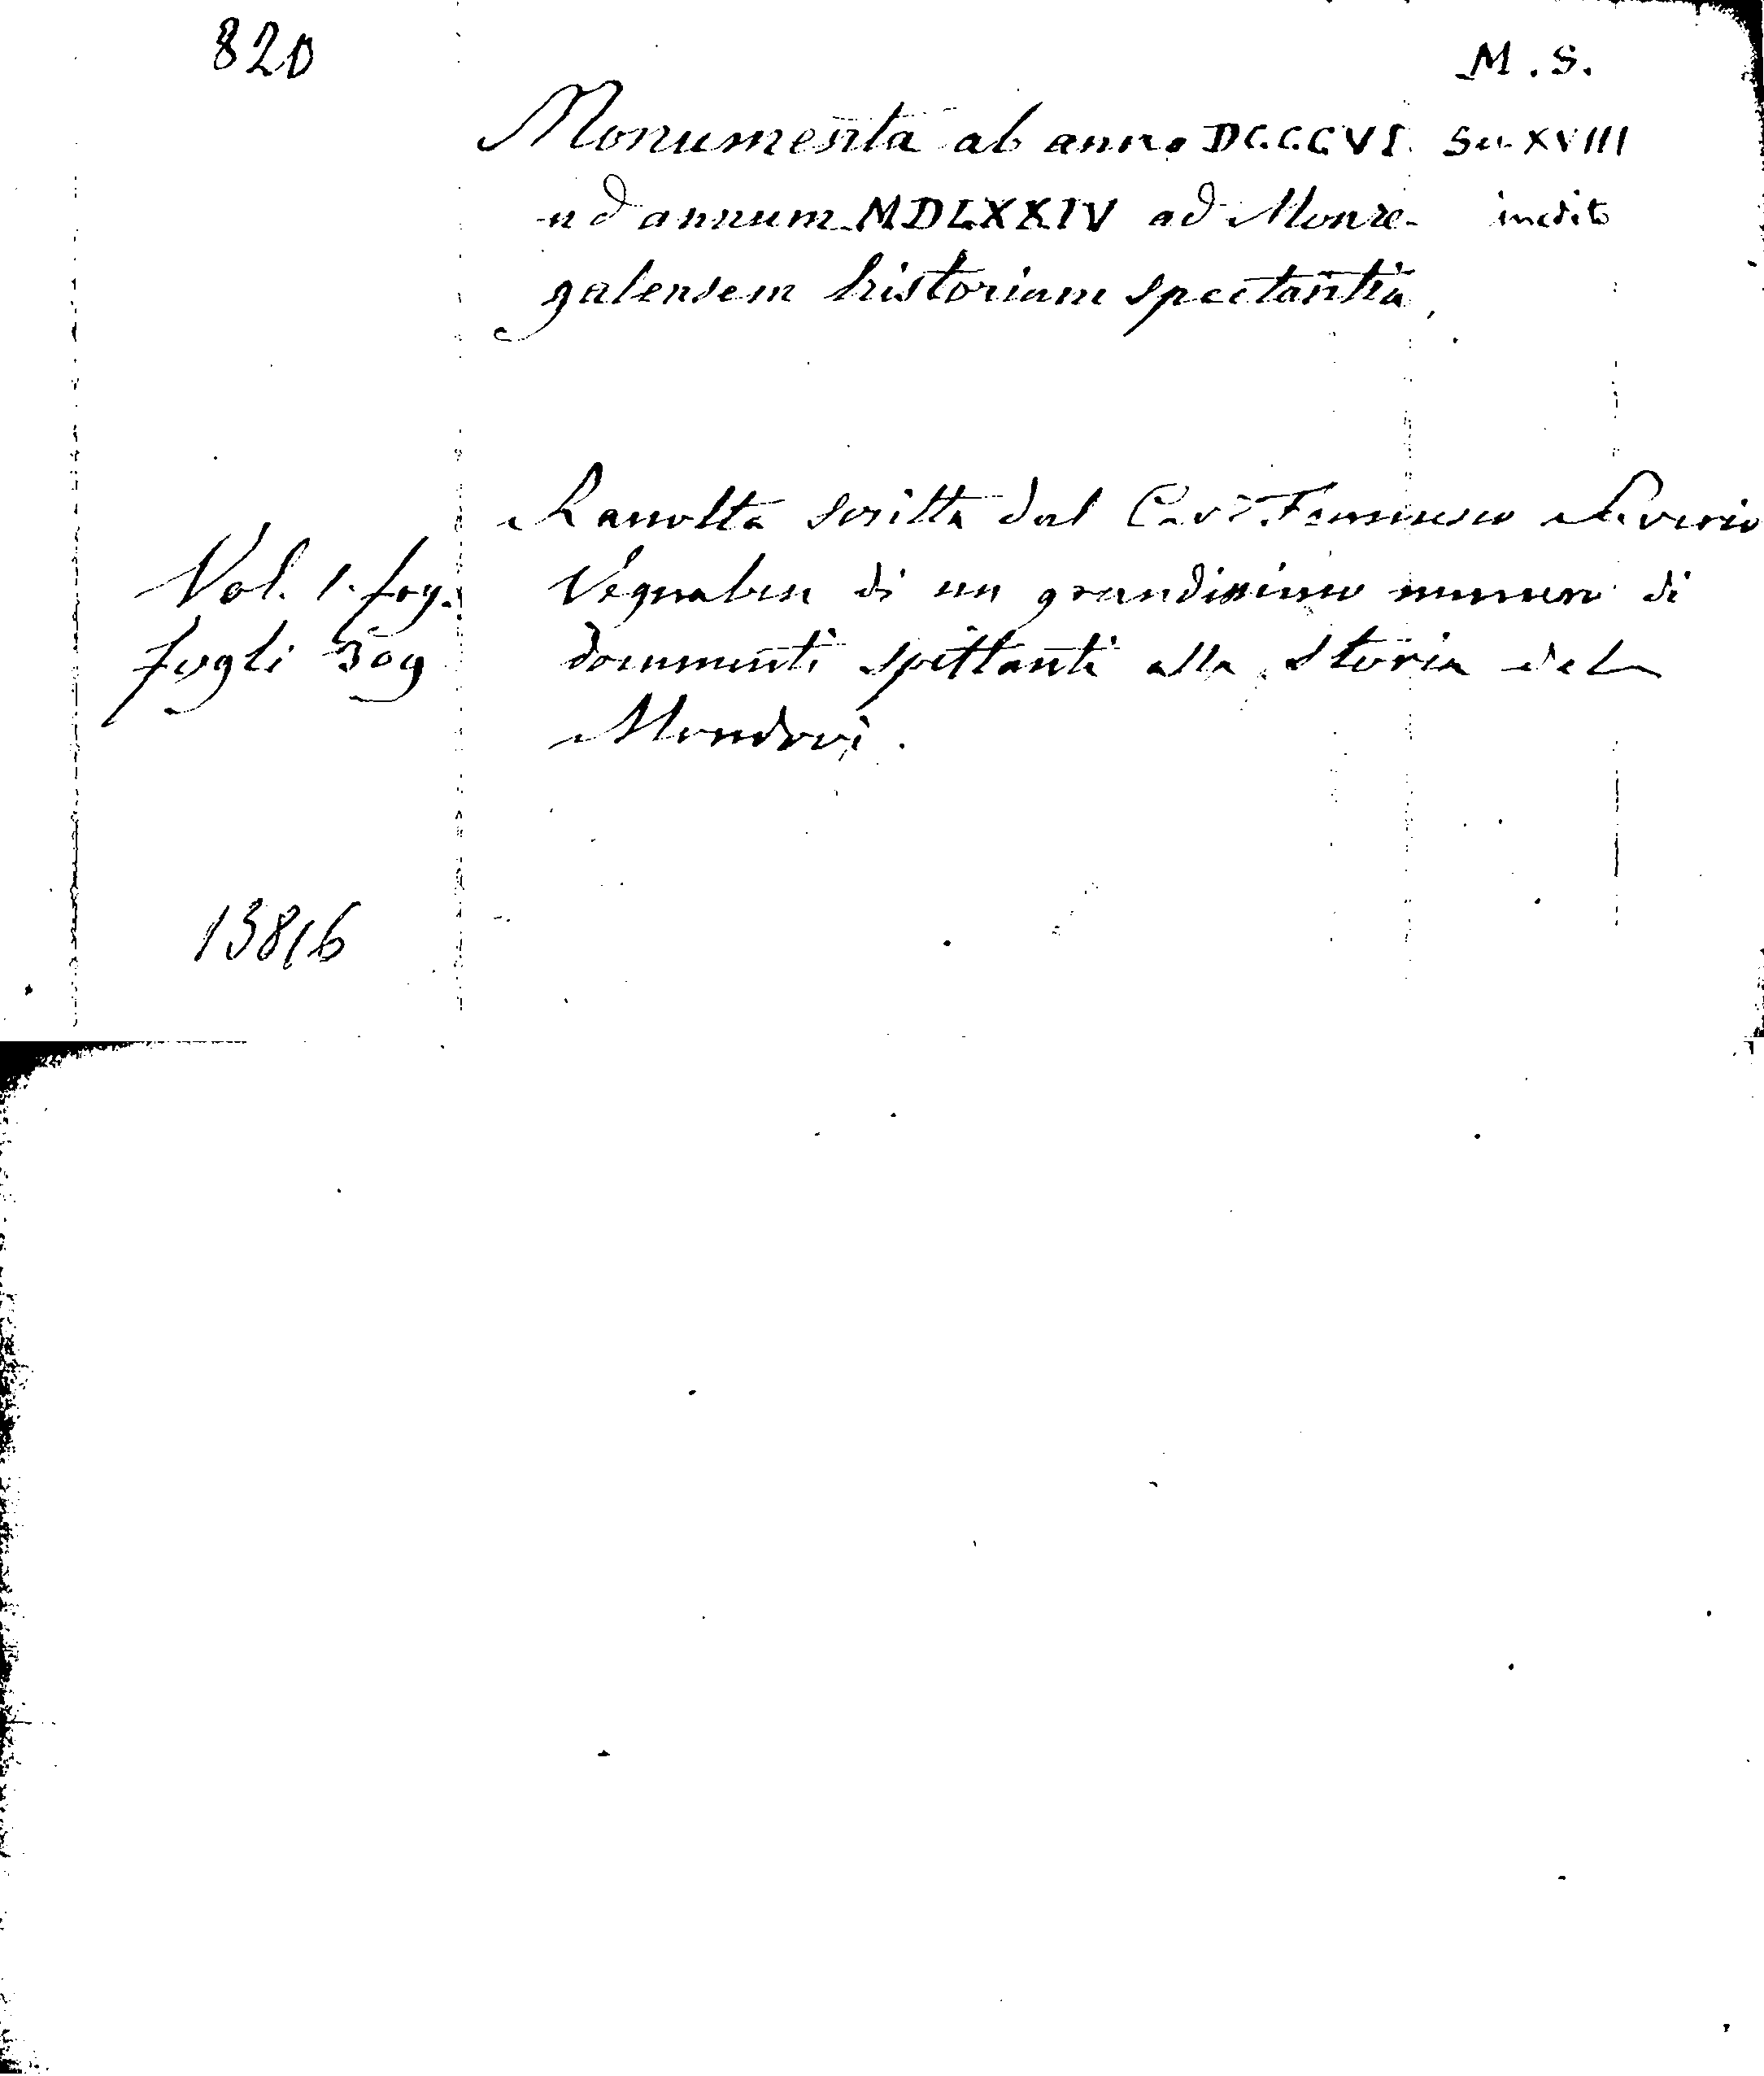 820
M. S.
Monumenta ab anno DCCCCVI. Sec. XVIII
ad annum MDLXXIV ad Monre- inedito
galensem historiam spectantia,
Raccolta scritta dal Cav.e Francesco Saverio
Vol. 1. fog.
di un grandissimo numero di
fogli 309
documenti spettanti alla storia del
Mondovì.
13816